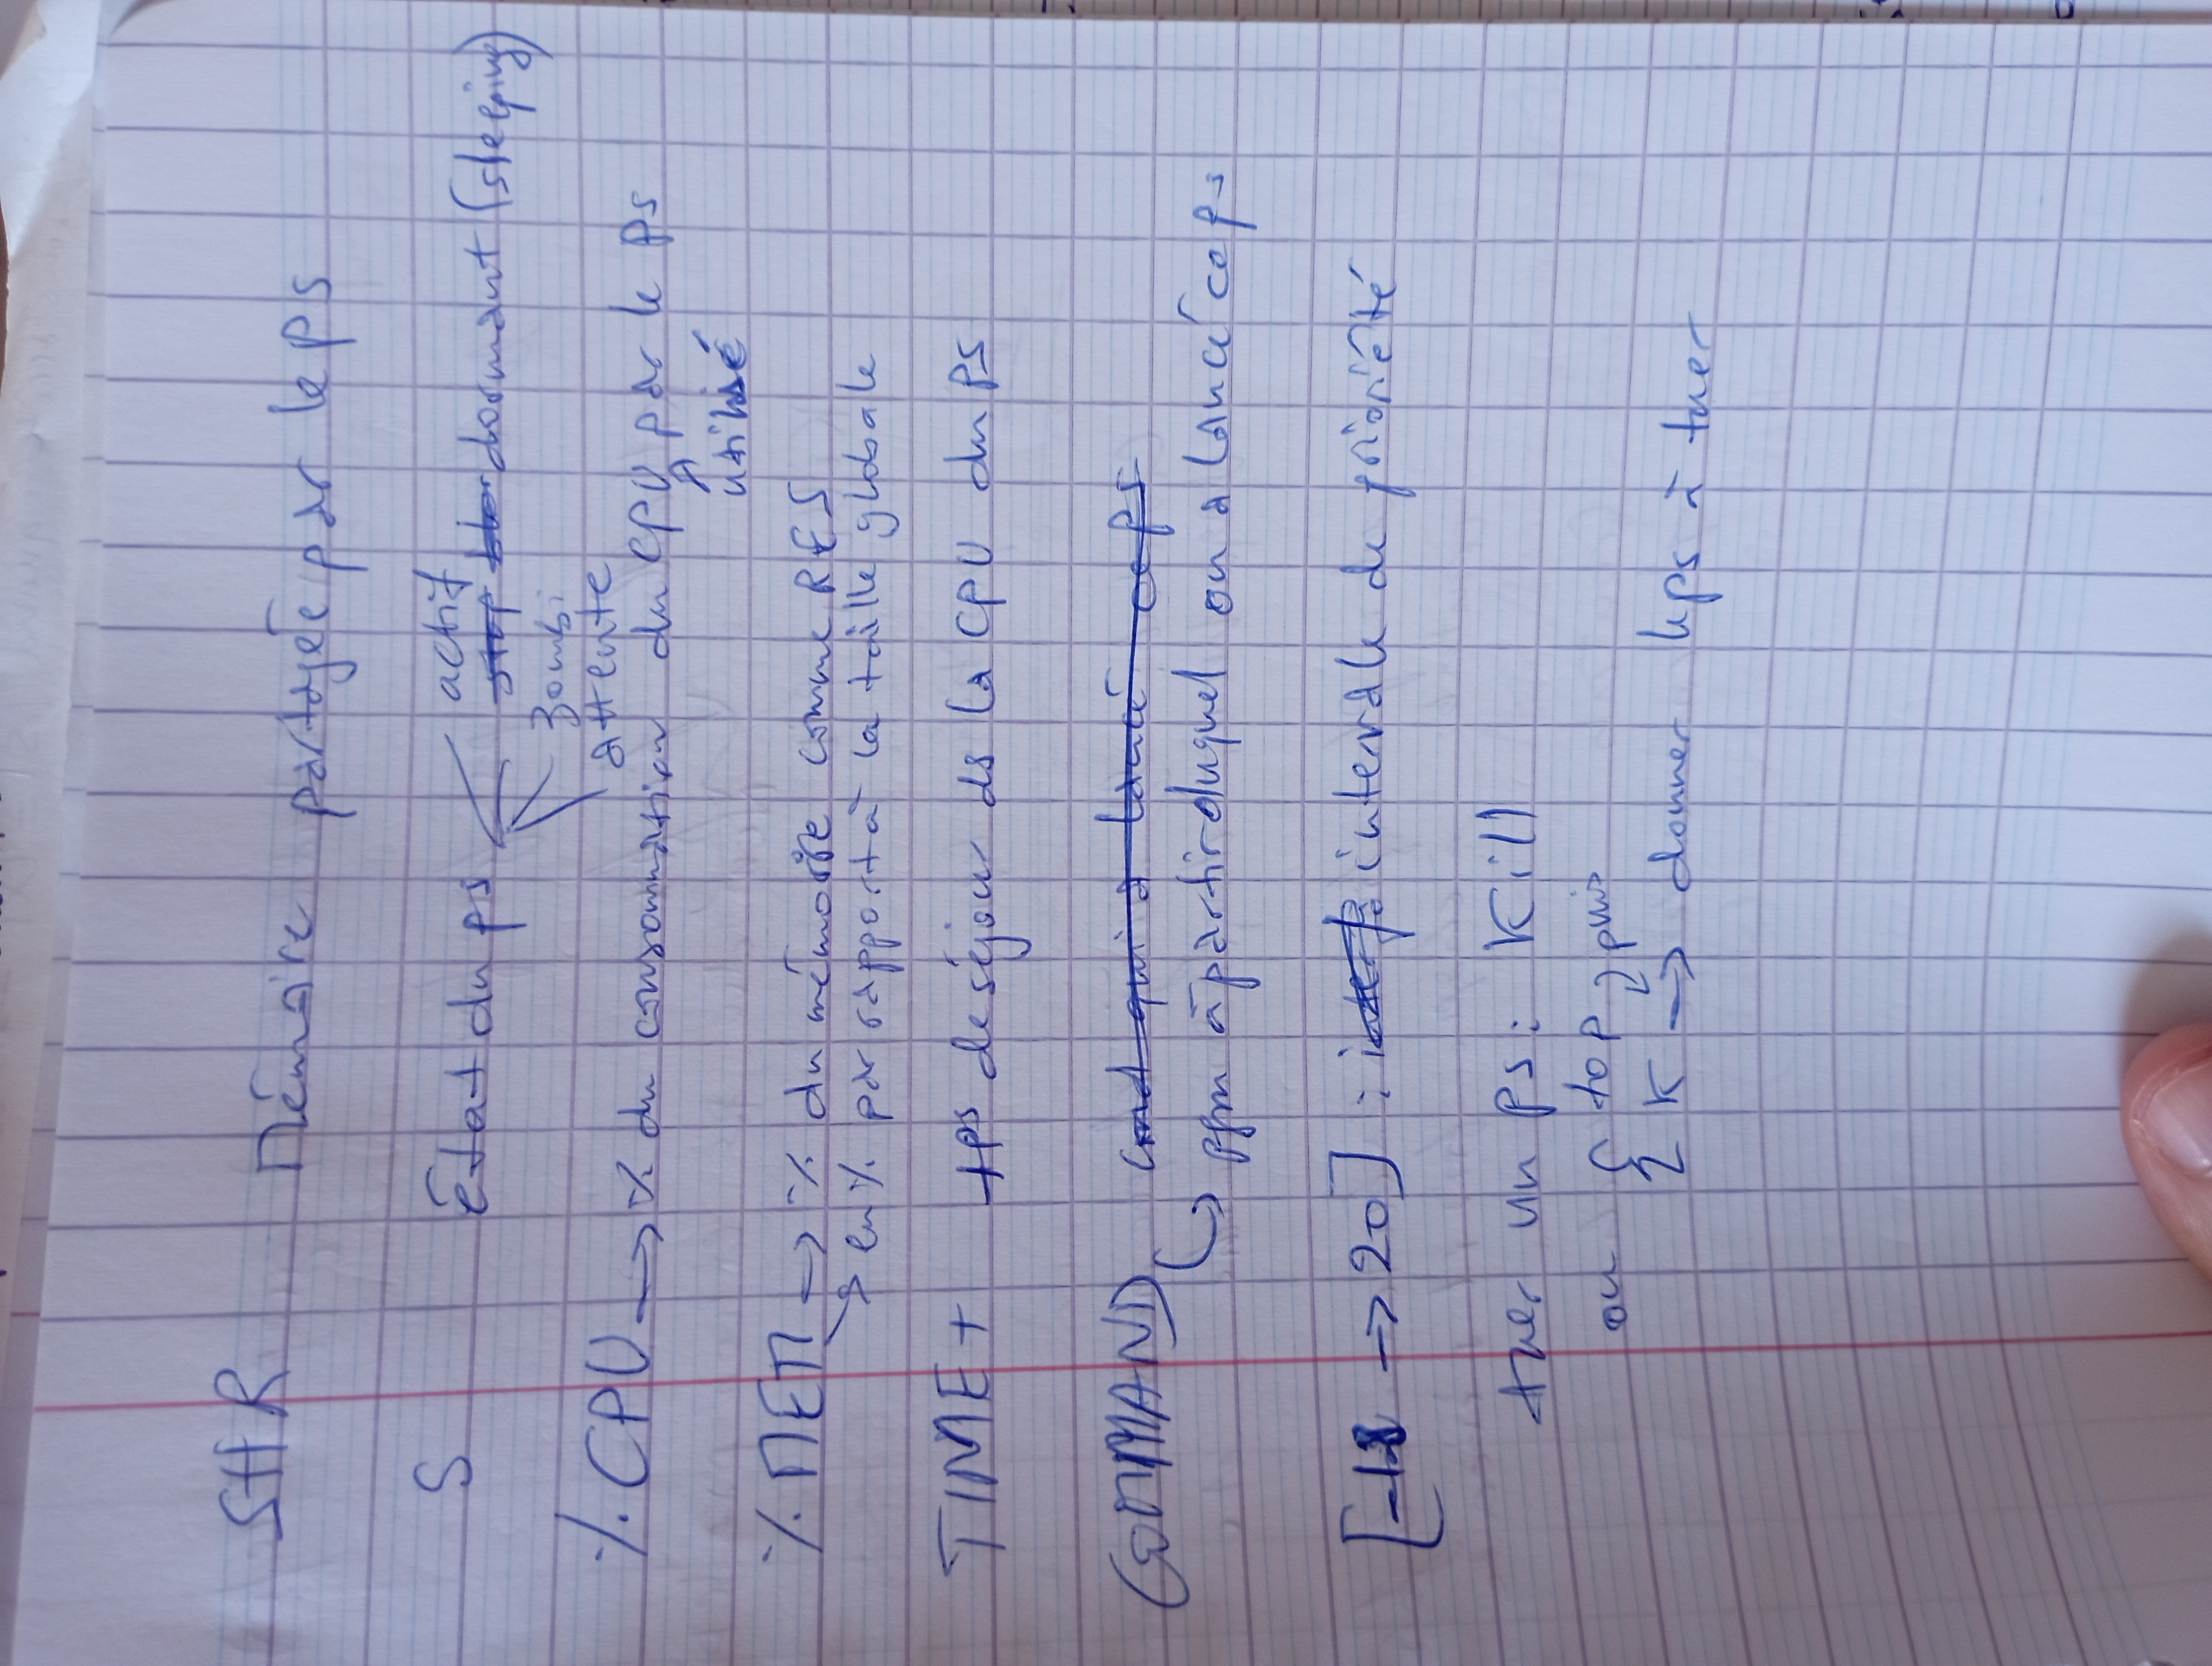 SHR Mémoire partagée par le ps
S État du ps actif
stop dormant (sleeping)
zombi
attente
% CPU → % du consommation du CPU par le Ps
utilisé
% MEM → % du mémoire comme RES
→ en % par rapport à la taille globale
TIME+ tps de séjour ds la CPU du PS
COMMAND cmd qui a lancé ce ps
↳ pgm à partir duquel on a lancé ce ps
→ 20] : intervale de priorité
tuer un ps : Kill
ou { top puis
K → donner le ps à tuer